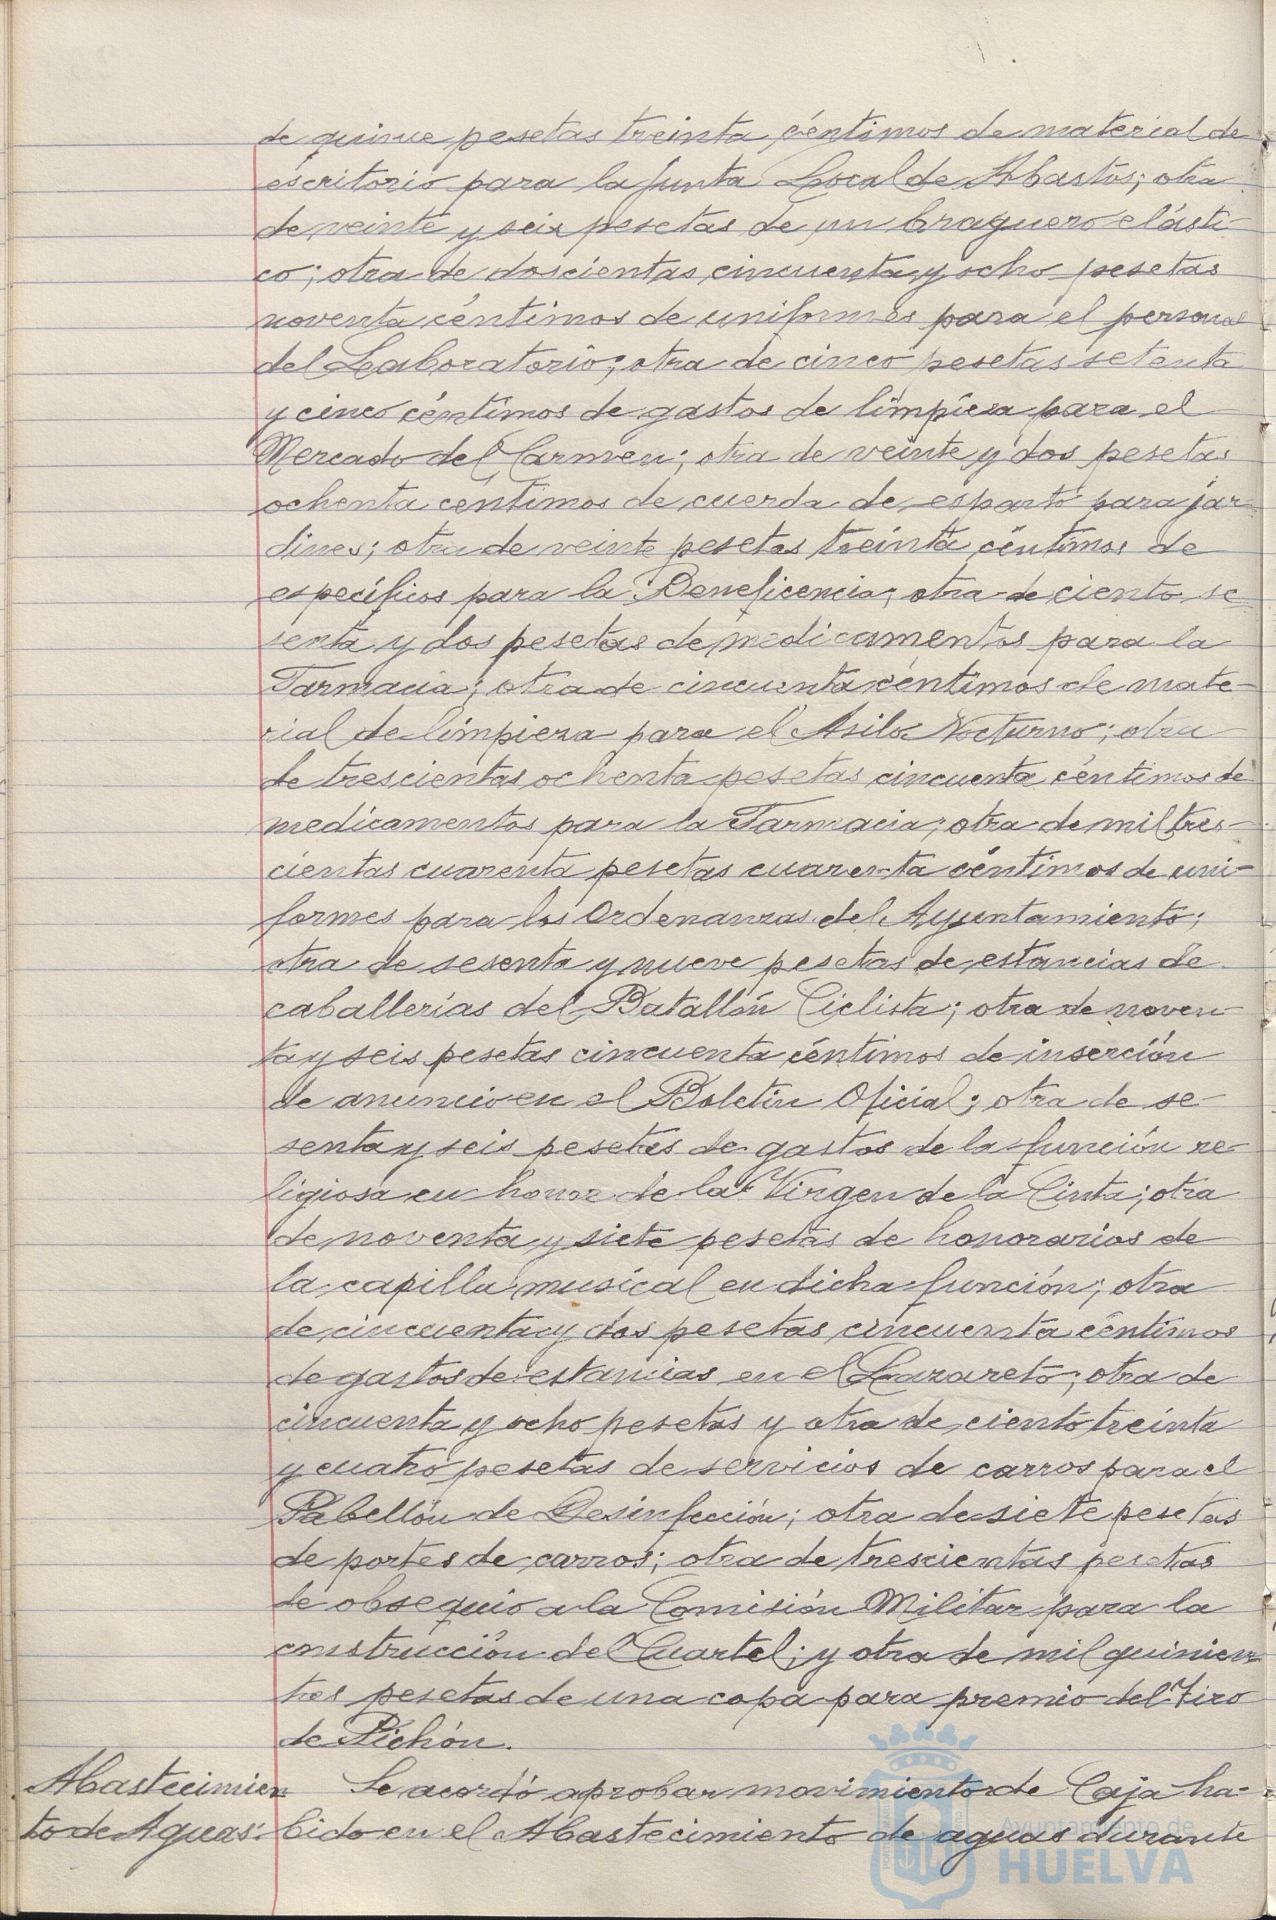 de quince pesetas treinta céntimos de material de
escritorio para la Junta Local de Abastos; otra
de veinte y seis pesetas de un braguero elásti-
co; otra de doscientas cincuenta y ocho pesetas
noventa céntimos de uniformes para el personal
del Laboratorio; otra de cinco pesetas setenta
y cinco céntimos de gastos de limpieza para el
Mercado del Carmen; otra de veinte y dos pesetas
ochenta centimos de cuerda de esparto para jar-
dines; otra de veinte pesetas treinta céntimos de
específicos para la Beneficencia; otra de ciento se-
senta y dos pesetas de medicamentos para la
Farmacia; otra de cincuenta céntimos de mate-
rial de limpieza para el Asilo Nocturno; otra
de trescientas ochenta pesetas cincuenta céntimos de
medicamentos para la Farmacia; otra de mil tres-
cientas cuarenta pesetas cuarenta céntimos de uni-
formes para los Ordenanzas del Ayuntamiento;
otra de sesenta y nueve pesetas de estancias de
caballerías del Batallón Ciclista; otra de noven-
ta y seis pesetas cincuenta céntimos de inserción
de anuncio en el Boletin Oficial; otra de se-
senta y seis pesetas de gastos de la función re-
ligiosa en honor de la Virgen de la Cinta; otra
de noventa y siete pesetas de honorarios de
la capilla musical en dicha función; otra
de cincuenta y dos pesetas cincuenta céntimos
de gastos de estancias en el Lazareto; otra de
cincuenta y ocho pesetas y otra de ciento treinta
y cuatro pesetas de servicios de carros para el
Pabellón de Desinfección; otra de siete pesetas
de portes de carros; otra de trescientas pesetas
de obsequio a la Comisión Militar para la
construcción del Cuartel; y otra de mil quinien-
tas pesetas de una copa para premio del Tiro
de Pichón.
Abastecimien Se acordó aprobar movimiento de Caja ha-
to de Aguas: bido en el Abastecimiento de aguas durante
Ayuntamiento de
HUELVA